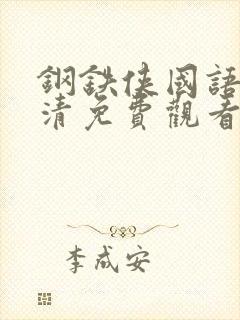 鋼鉄俠國語
清免費觀看
李成安